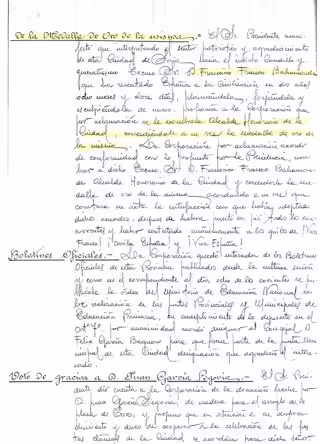 De la Medalla de Oro de la misma.- El Sr. Presidente mani-
fiesta que interpretando el sentir patriotico y agradecimiento
de esta Ciudad de hacia el invicto Caudillo y
Excmo Sr. D. Francisco Franco Bahamonde
que ha rescatado España a la Civilización en dos años
ocho meses y doce días,
de nuevo, proponia a la Corporación que
por aclamación se le nombrara Alcalde Honorario de la
Ciudad, concediendole a su vez la medalla de oro de
la misma. La Corporación por aclamación acordó
de conformidad con lo propuesto por la Presidencia, nom-
brar a dicho Excmo Sr. D. Francisco Franco Bahamon-
de Alcalde Honorario de la Ciudad y concederle la me-
dalla de oro de la misma,
en acta, la satisfacción con que habia adoptado
dicho acuerdo, despues de haberse puesto en pié todos los con-
currentes y haber contestado a los gritos de ¡Viva
Franco! ¡Arriba España! y ¡Viva España!
Boletines Oficiales.- La Corporación quedó enterada de los Boletines
Oficiales de esta Provincia publicados desde la ultima sesión
y como en el correspondiente al día ocho de los corrientes se pu-
blicaba la orden del Ministerio de Educación Nacional so-
bre de las Juntas Provinciales y Municipales de
Educación Primaria, en cumplimiento de lo dispuesto en el
por unanimidad acordó designar al Concejal D.
Felix García Baquero para que forme parte de la Junta Mu-
nicipal de esta Ciudad, designación que agradeció el intere-
sado.
Voto de gracias a D. Juan García Segovia.- El Sr. Presi-
dente dió cuenta a la Corporación de la donación hecha por
D. Juan García Segovia, de madera para el arreglo de la
plaza de Toros, y propuso que en atención a su
y a la celebración de las fies-
tas de la Ciudad, se acordara para dicho señor